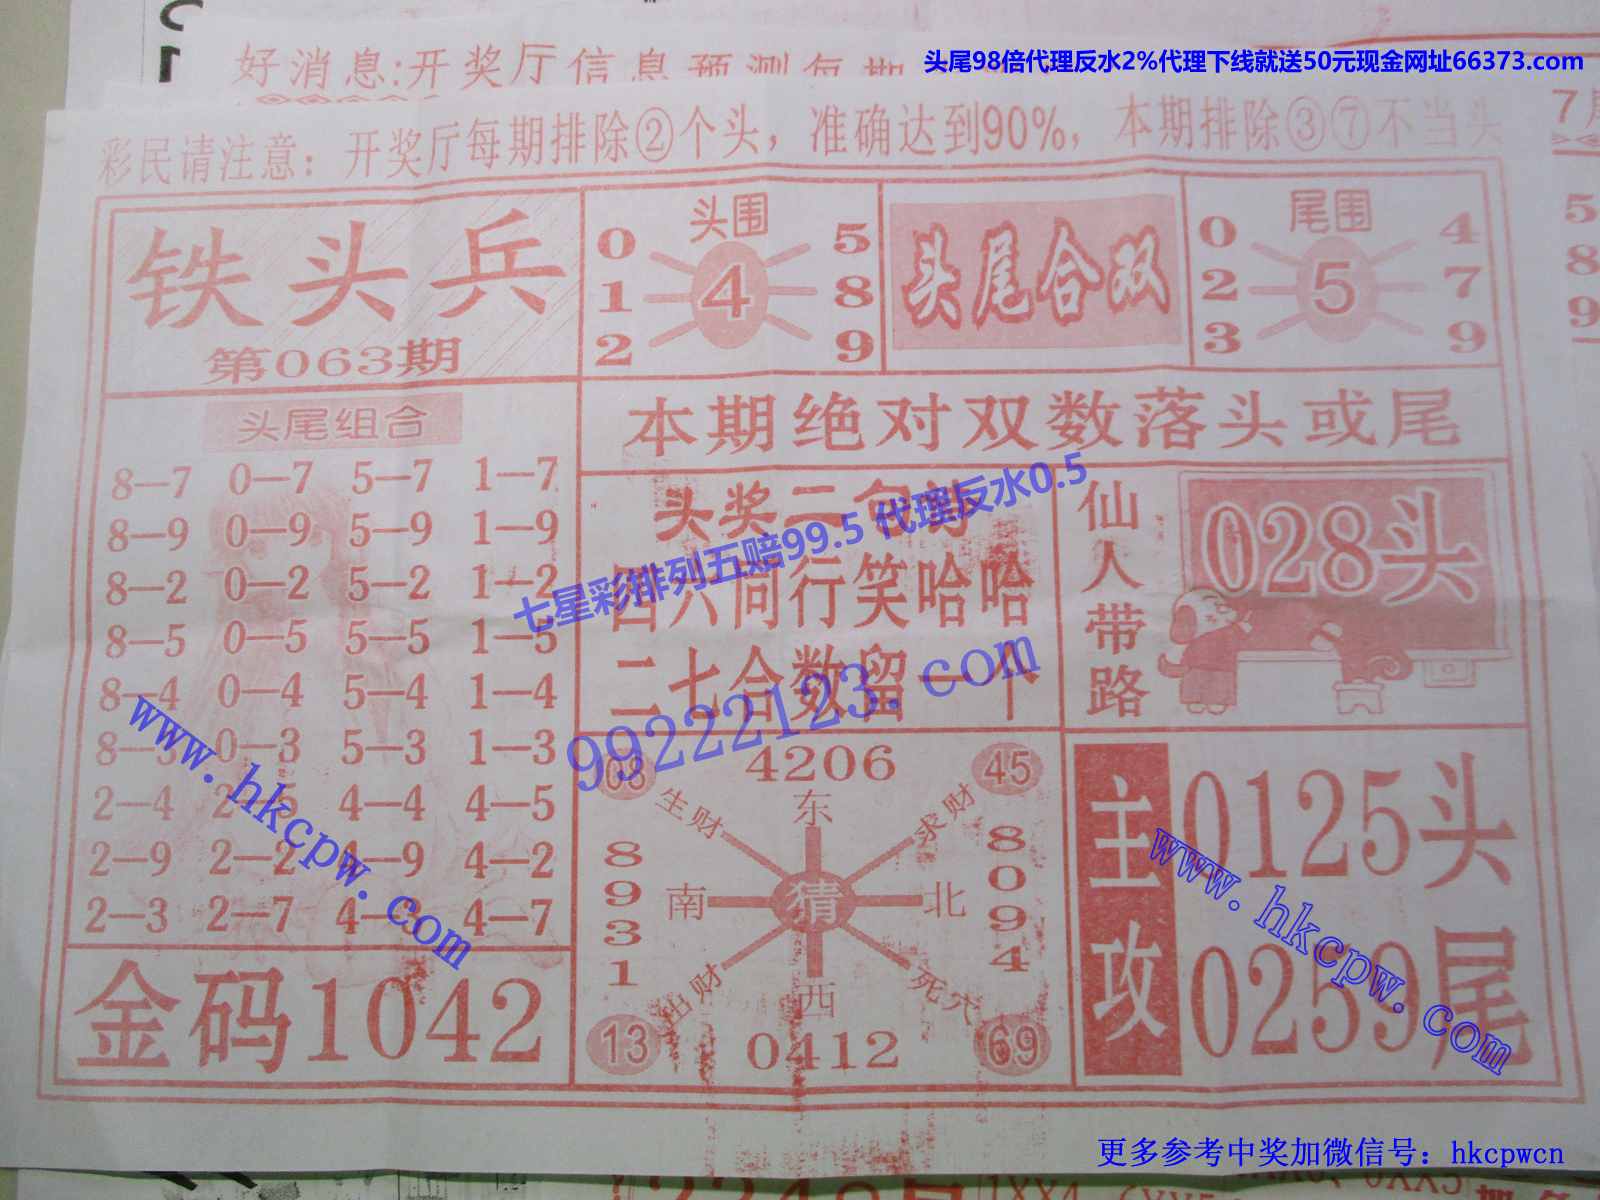 好消息:开奖厅信息预测每期
头尾98倍代理反水2%代理下线就送50元现金网址66373.com
彩民请注意：开奖厅每期排除②个头，准确达到90%，本期排除③⑦不当头
铁头兵
第063期
头围
0 5
1 4 8
2 9
头尾合双
尾围
0 4
2 5 7
3 9
头尾组合
8—7 0—7 5—7 1—7
8—9 0—9 5—9 1—9
8—2 0—2 5—2 1—2
8—5 0—5 5—5 1—5
8—4 0—4 5—4 1—4
8—3 0—3 5—3 1—3
2—4 2—5 4—4 4—5
2—9 2—2 4—9 4—2
2—3 2—7 4—3 4—7
金码1042
本期绝对双数落头或尾
头奖二句诗
四六同行笑哈哈
二七合数留一个
七星彩排列五赔99.5 代理反水0.5
99222123.com
仙人带路
028头
08 4206 45
生财 东 求财
8931 南 猜 北 8094
出财 西 死穴
13 0412 69
主攻
0125头
0259尾
www.hkcpw.com
www.hkcpw.com
更多参考中奖加微信号：hkcpwcn